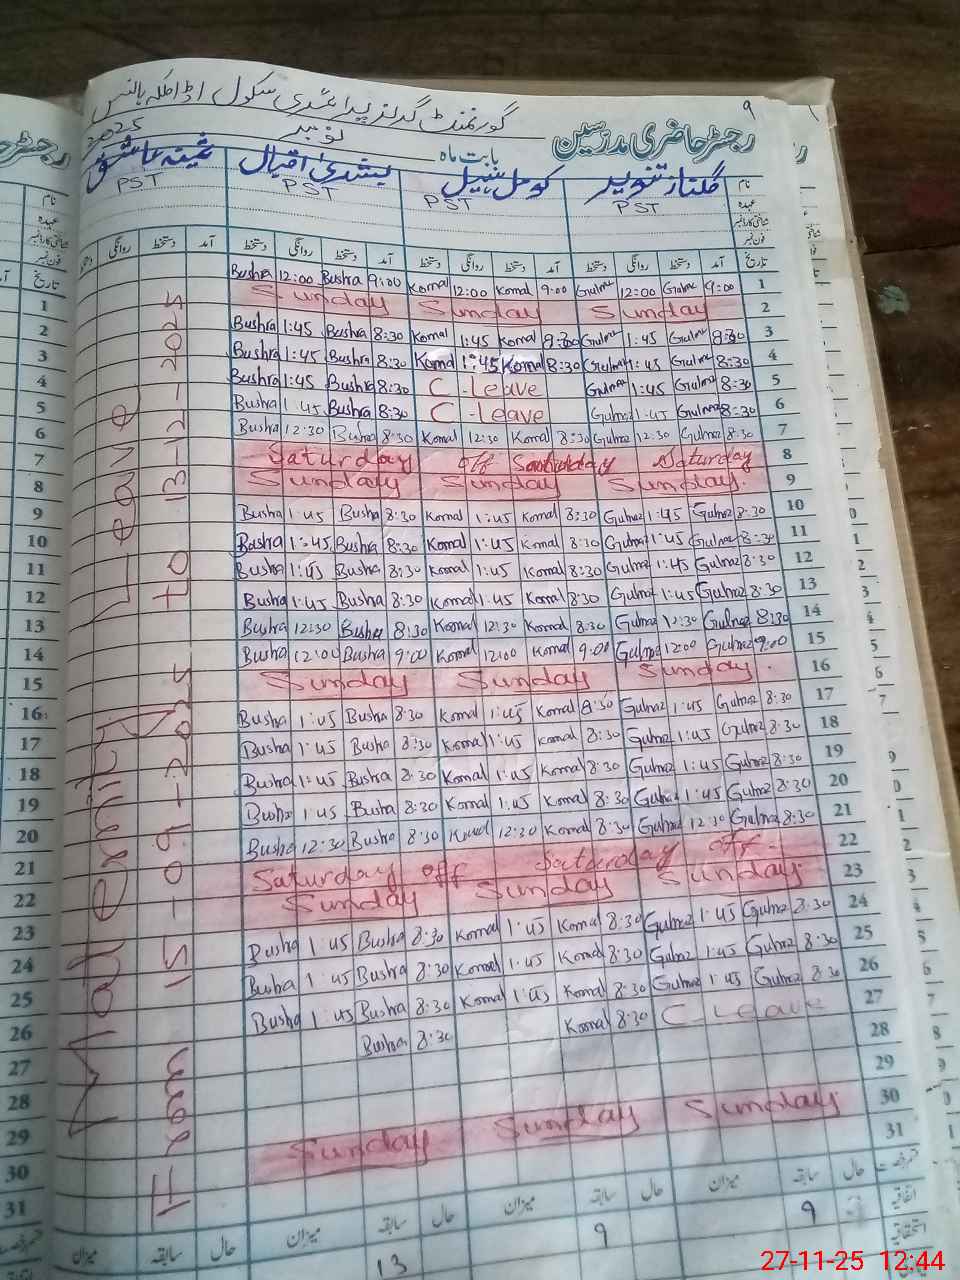 گورنمنٹ گرلز پرائمری سکول اڈا
رجسٹر حاضری مدرسین
بابت ماہ نومبر 2025
گلناز تنویر کومل سہیل بشریٰ اقبال ثمینہ عاشق
PST PST PST PST
نام
عہدہ
شناختی کارڈ نمبر
فون نمبر
تاریخ آمد دستخط روانگی دستخط آمد دستخط روانگی دستخط آمد دستخط روانگی دستخط آمد دستخط روانگی
Bushra 12:00 Bushra 9:00 Komal 12:00 Komal 9:00 Gulnaz 12:00 Gulnaz 9:00 1
Sunday Sunday Sunday 2
Bushra 1:45 Bushra 8:30 Komal 1:45 Komal 8:30 Gulnaz 1:45 Gulnaz 8:30 3
Bushra 1:45 Bushra 8:30 Komal 1:45 Komal 8:30 Gulnaz 1:45 Gulnaz 8:30 4
Bushra 1:45 Bushra 8:30 C-Leave Gulnaz 1:45 Gulnaz 8:30 5
Bushra 1:45 Bushra 8:30 C-Leave Gulnaz 1:45 Gulnaz 8:30 6
Bushra 12:30 Bushra 8:30 Komal 12:30 Komal 8:30 Gulnaz 12:30 Gulnaz 8:30 7
Saturday off Saturday Saturday 8
Sunday Sunday Sunday. 9
Bushra 1:45 Bushra 8:30 Komal 1:45 Komal 8:30 Gulnaz 1:45 Gulnaz 8:30 10
Bushra 1:45 Bushra 8:30 Komal 1:45 Komal 8:30 Gulnaz 1:45 Gulnaz 8:30 11
Bushra 1:45 Bushra 8:30 Komal 1:45 Komal 8:30 Gulnaz 1:45 Gulnaz 8:30 12
Bushra 1:45 Bushra 8:30 Komal 1:45 Komal 8:30 Gulnaz 1:45 Gulnaz 8:30 13
Bushra 12:30 Bushra 8:30 Komal 12:30 Komal 8:30 Gulnaz 12:30 Gulnaz 8:30 14
Bushra 12:00 Bushra 9:00 Komal 12:00 Komal 9:00 Gulnaz 12:00 Gulnaz 9:00 15
Sunday Sunday Sunday. 16
Bushra 1:45 Bushra 8:30 Komal 1:45 Komal 8:30 Gulnaz 1:45 Gulnaz 8:30 17
Bushra 1:45 Bushra 8:30 Komal 1:45 Komal 8:30 Gulnaz 1:45 Gulnaz 8:30 18
Bushra 1:45 Bushra 8:30 Komal 1:45 Komal 8:30 Gulnaz 1:45 Gulnaz 8:30 19
Bushra 1:45 Bushra 8:30 Komal 1:45 Komal 8:30 Gulnaz 1:45 Gulnaz 8:30 20
Bushra 12:30 Bushra 8:30 Komal 12:30 Komal 8:30 Gulnaz 12:30 Gulnaz 8:30 21
Saturday off Saturday off. 22
Sunday Sunday Sunday. 23
Bushra 1:45 Bushra 8:30 Komal 1:45 Komal 8:30 Gulnaz 1:45 Gulnaz 8:30 24
Bushra 1:45 Bushra 8:30 Komal 1:45 Komal 8:30 Gulnaz 1:45 Gulnaz 8:30 25
Bushra 1:45 Bushra 8:30 Komal 1:45 Komal 8:30 Gulnaz 1:45 Gulnaz 8:30 26
Bushra 8:30 Komal 8:30 C Leave 27
28
29
Sunday Sunday Sunday 30
31
Maternity Leave
From 15-09-2025 to 13-12-2025
حال سابقہ میزان حال سابقہ میزان حال سابقہ میزان حال سابقہ میزان
اتفاقیہ 9 9 13
استحقاقیہ
تاریخ
1
2
3
4
5
6
7
8
9
10
11
12
13
14
15
16
17
18
19
20
21
22
23
24
25
26
27
28
29
30
31
27-11-25 12:44